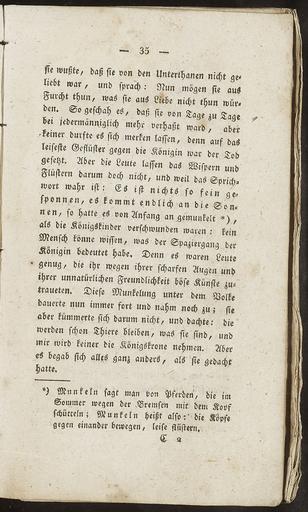 — 35 —
sie wußte, daß sie von den Unterthanen nicht ge-
liebt war, und sprach: Nun mögen sie aus
Furcht thun, was sie aus Liebe nicht thun wür-
den. So geschah es, daß sie von Tage zu Tage
bei jedermänniglich mehr verhaßt ward, aber
keiner durfte es sich merken lassen, denn auf das
leiseste Geflüster gegen die Königin war der Tod
gesetzt. Aber die Leute lassen das Wispern und
Flüstern darum doch nicht, und weil das Sprich-
wort wahr ist: Es ist nichts so fein ge-
sponnen, es kommt endlich an die Son-
nen, so hatte es von Anfang an gemunkelt *),
als die Königskinder verschwunden waren: kein
Mensch könne wissen, was der Spaziergang der
Königin bedeutet habe. Denn es waren Leute
genug, die ihr wegen ihrer scharfen Augen und
ihrer unnatürlichen Freundlichkeit böse Künste zu-
traueten. Diese Munkelung unter dem Volke
dauerte nun immer fort und nahm noch zu; sie
aber kümmerte sich darum nicht, und dachte: die
werden schon Thiere bleiben, was sie sind, und
mir wird keiner die Königskrone nehmen. Aber
es begab sich alles ganz anders, als sie gedacht
hatte.
*) Munkeln sagt man von Pferden, die im
Sommer wegen der Bremsen mit dem Kopf
schütteln; Munkeln heißt also: die Köpfe
gegen einander bewegen, leise flüstern.
C 2